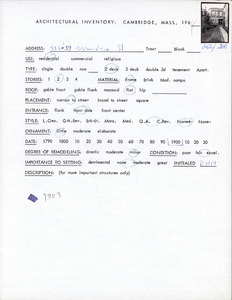 ARCHITECTURAL INVENTORY: CAMBRIDGE, MASS, 196
ADDRESS: Tract Block
USE: residential commercial religious
TYPE: single double row 2 deck 3 deck double 3d tenement Apart.
STORIES: 1 2 3 4 MATERIAL: Frame Brick Mod. comps
ROOF: gable front gable flank mansard flat hip
PLACEMENT: narrow to street broad to street square
ENTRANCE: flank front side front center
STYLE: L.Geo. Grk.Rev. Brktd. Mans. Med. Q.A. C.Rev. None
ORNAMENT: little moderate elaborate
DATE: 1790 1800 10 20 30 40 50 60 70 80 90 1900 10 20 30
DEGREE OF REMODELING: drastic moderate minor CONDITION: poor fair excel.
IMPORTANCE TO SETTING: detrimental none moderate great INITIALED
DESCRIPTION: (for more important structures only)
1903